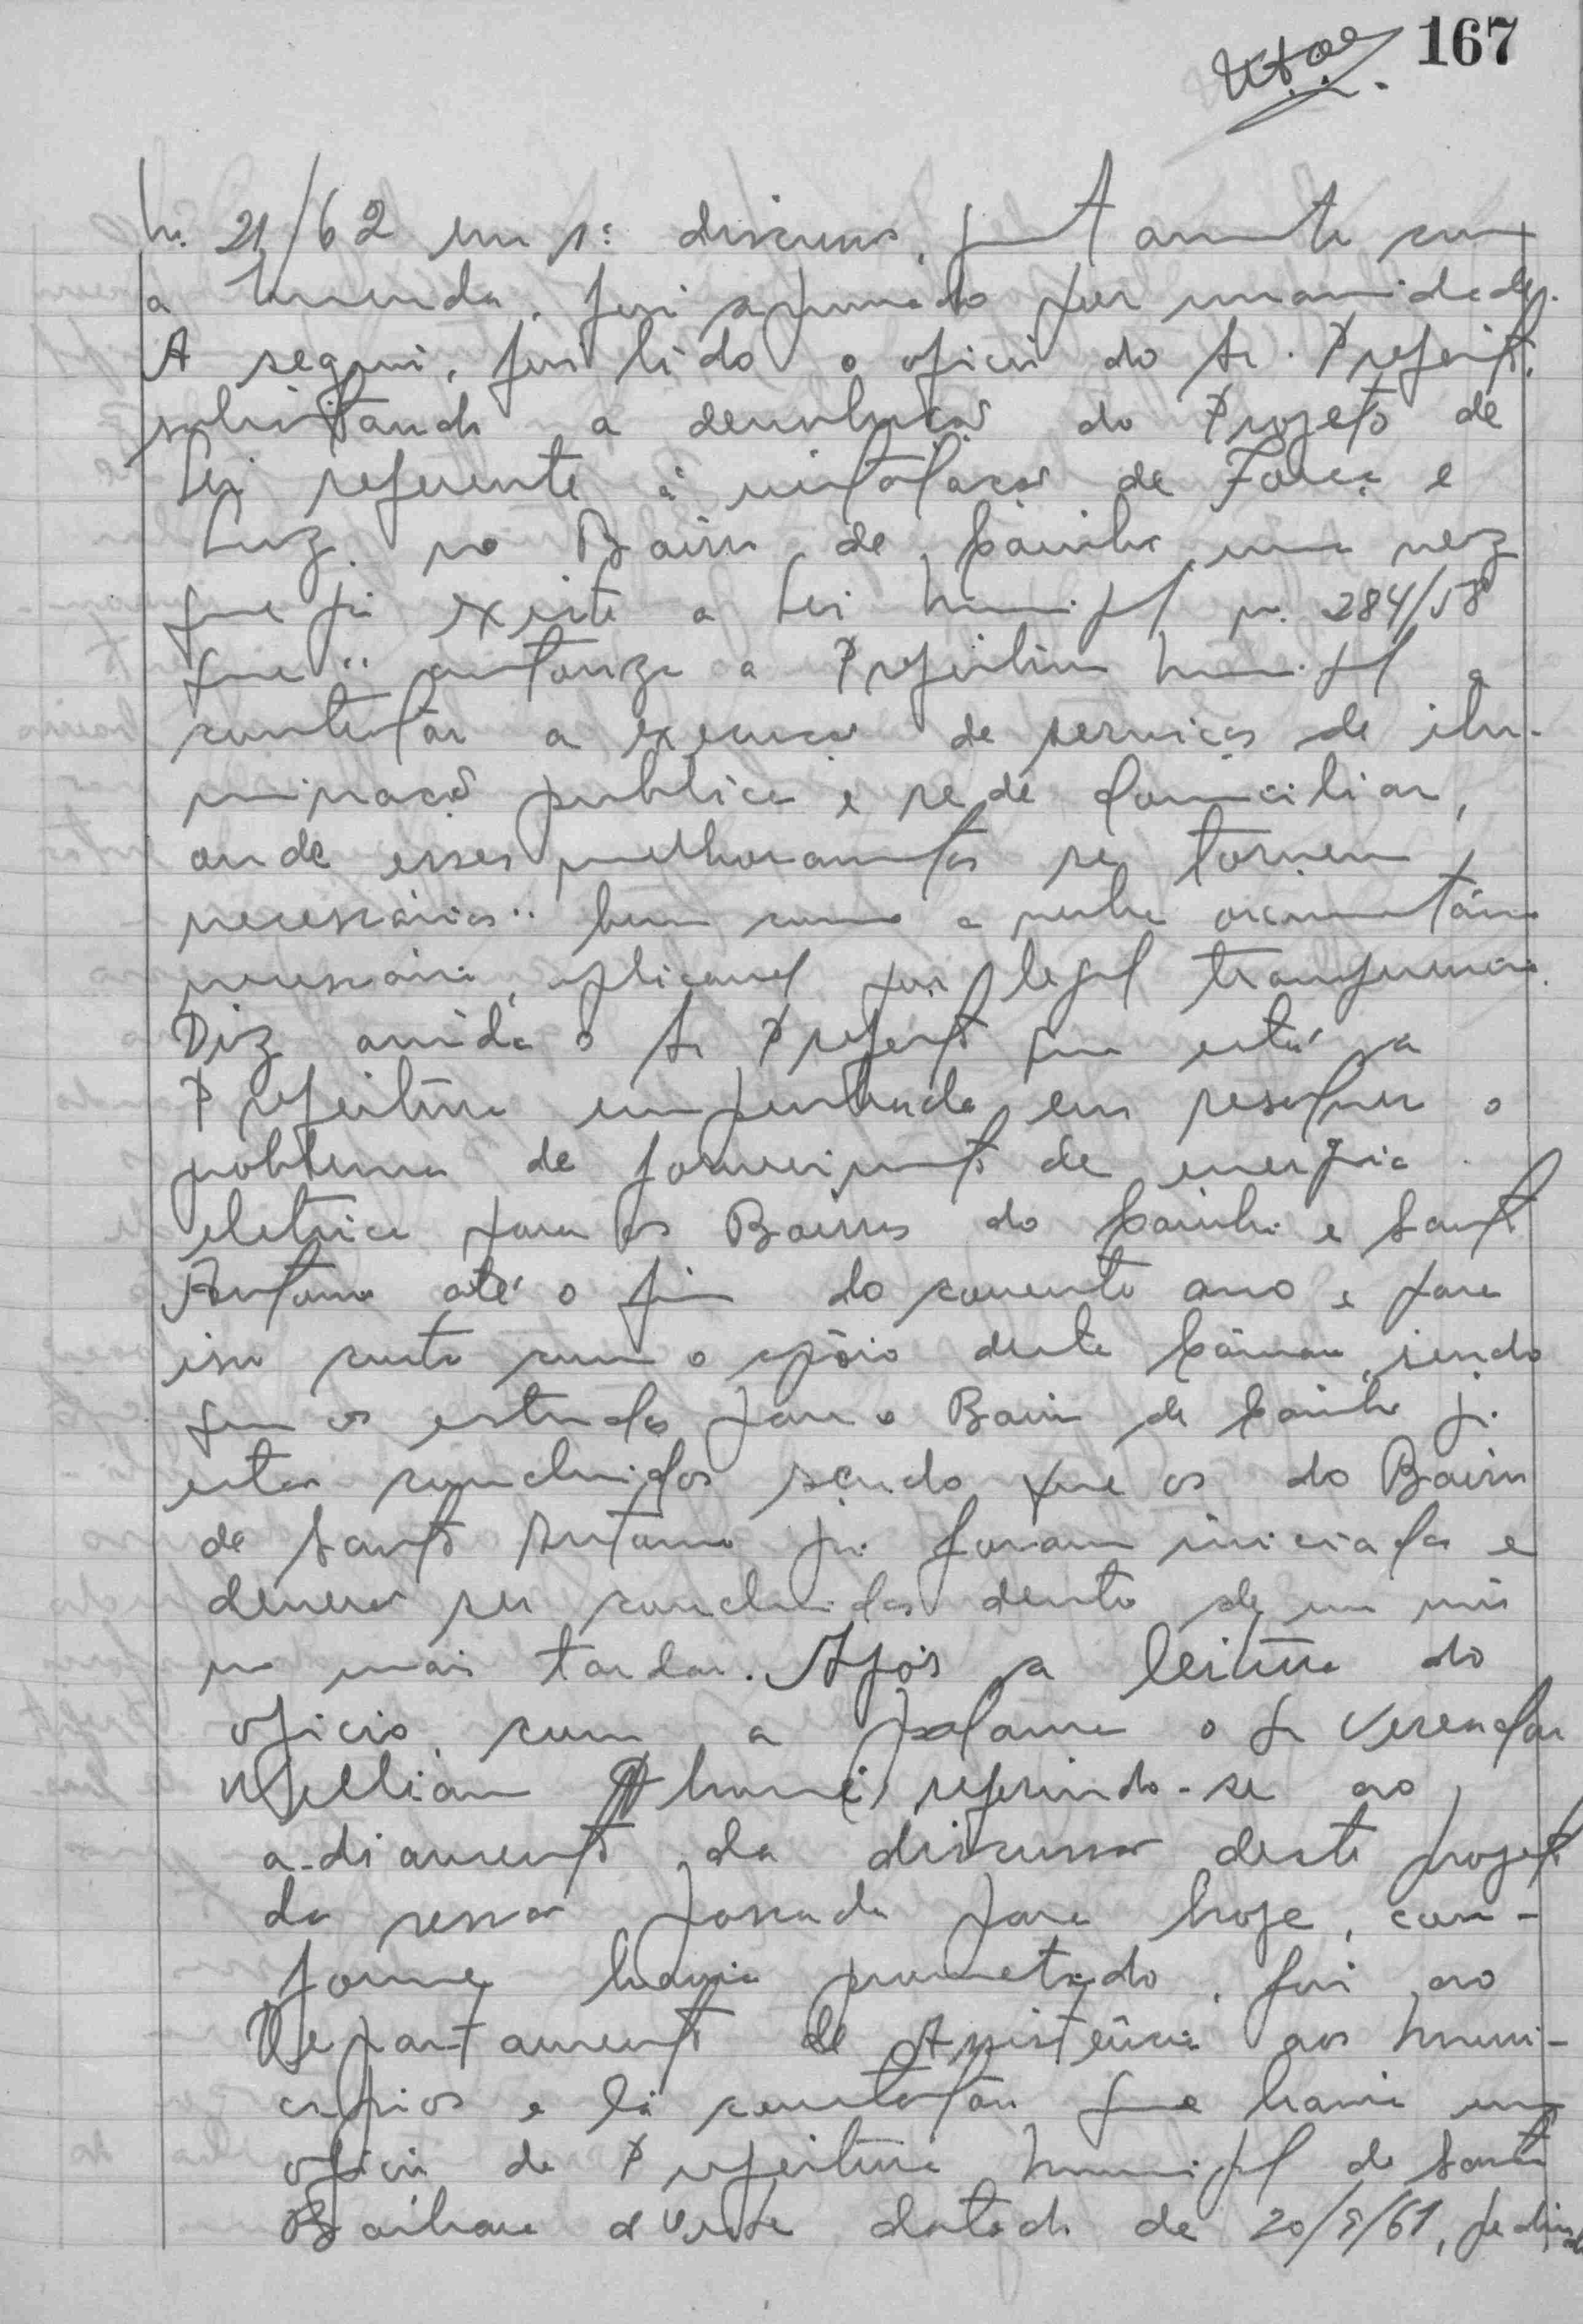 167
n. 21/62 em 1ª discussão, juntamente com
a emenda, foi aprovado por unanimidade.
A seguir, foi lido o oficio do Sr. Prefeito,
solicitando a devolução do Projeto de
Lei referente á instalação de Força e
Luz, no Bairro de Caiubi, uma vez
que já existe a Lei Municipal n. 284/58
que "autoriza a Prefeitura Municipal a
contratar a execução de serviços de ilu-
minação publica e rede domiciliar,
onde esses melhoramentos se tornem
necessários" bem como a verba orçamentária
necessária, aplicavel por legal transferencia.
Diz ainda o Sr Prefeito que está a
Prefeitura empenhada em resolver o
problema de fornecimento de energia
eletrica para os Bairros do Caiubi e Santo
Antonio até o fim do corrente ano e para
isso conta com o apôio desta Câmara, sendo
que os estudos para o Bairro de Caiubi já
estão concluidos sendo que os do Bairro
de Santo Antonio já foram iniciados e
deverão ser concluidos dentro de um mês
no mais tardar. Após a leitura do
oficio, com a palavra o Sr Vereador
referindo-se ao
adiamento da discussão deste projeto
da sessão passada para hoje, con-
forme havia prometido, foi ao
Departamento de Assistência aos Muni-
cipios e lá constatou que havia um
oficio da Prefeitura Municipal de Santa
Barbara d'Oeste datado de 20/9/61, pedindo